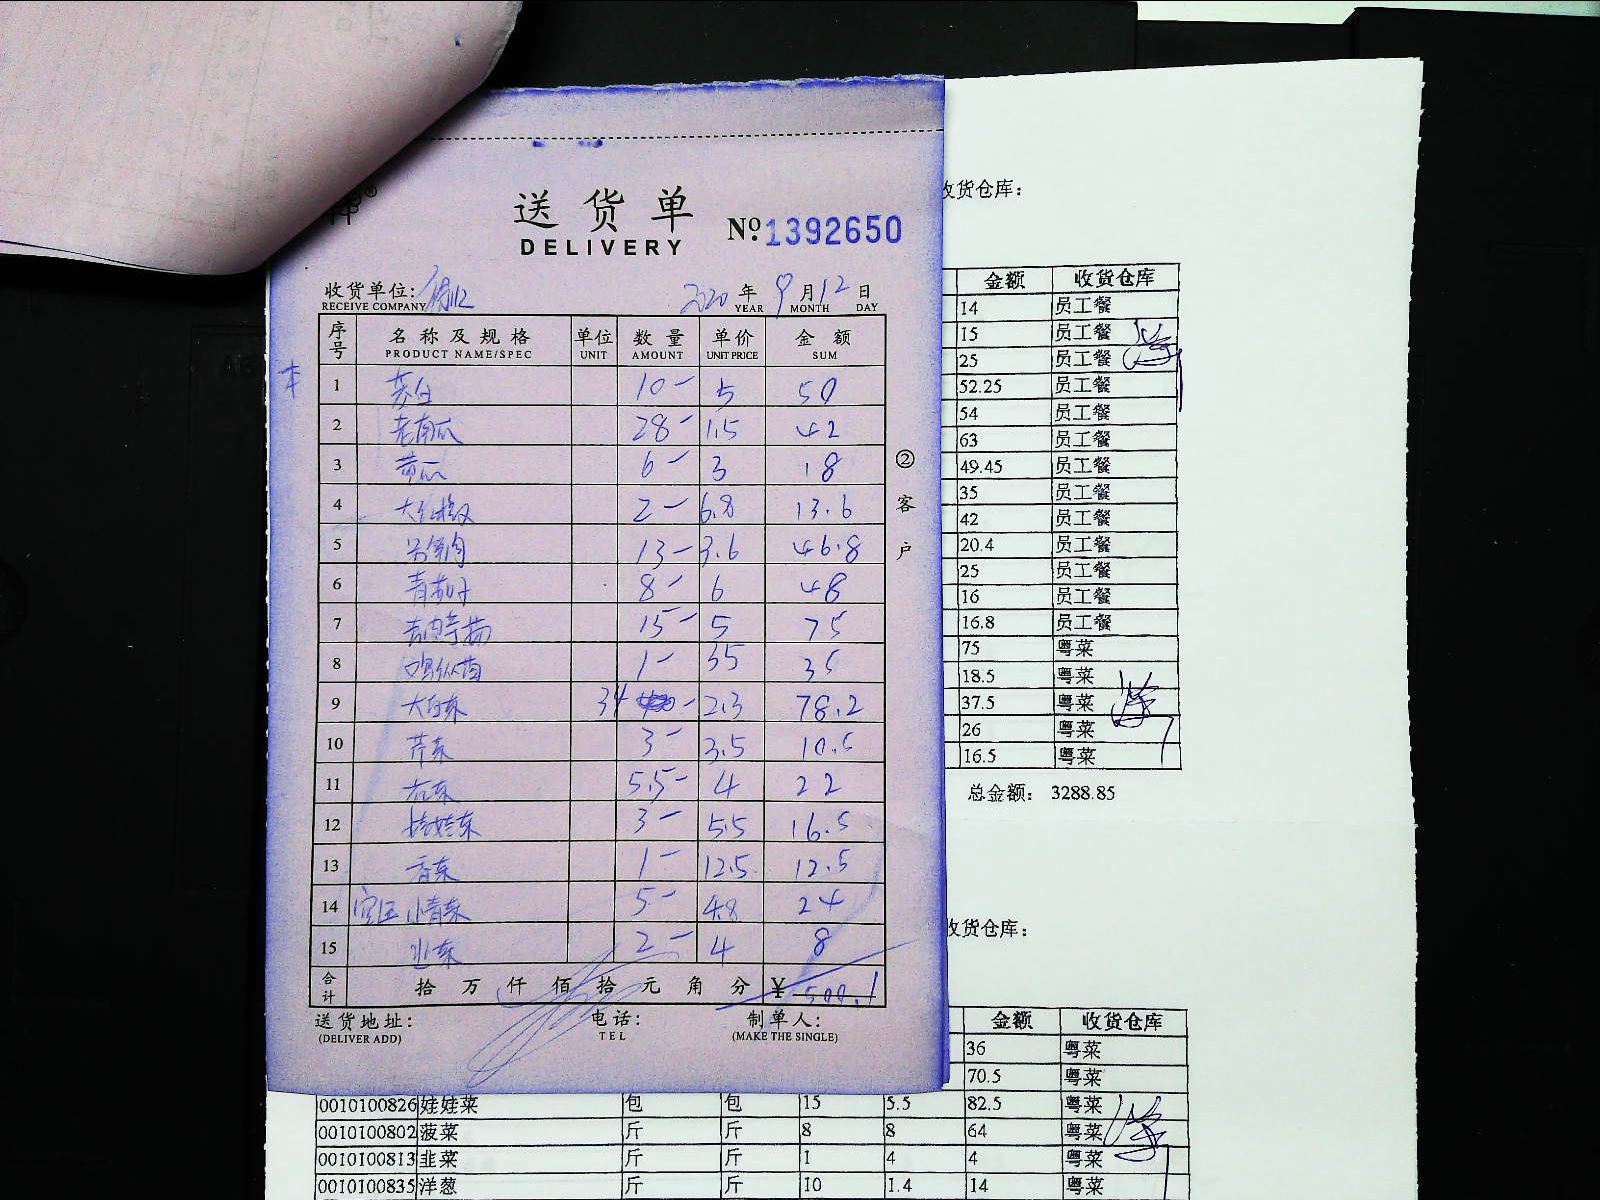 送货单
DELIVERY
Nº 1392650
收货单位:
RECEIVE COMPANY
2020 年 9 月 12 日
YEAR MONTH DAY
序号 名称及规格 单位 数量 单价 金额
PRODUCT NAME/SPEC UNIT AMOUNT UNIT PRICE SUM
1 10 - 5 50
2 老南瓜 28 - 1.5 42
3 黄瓜 6 - 3 18
4 2 - 6.8 13.6
5 13 - 3.6 46.8
6 8 - 6 48
7 15 - 5 75
8 1 - 35 35
9 大白菜 34 - 2.3 78.2
10 芹菜 3 - 3.5 10.5
11 5.5 - 4 22
12 娃娃菜 3 - 5.5 16.5
13 香菜 1 - 12.5 12.5
14 小青菜 5 - 4.8 24
15 2 - 4 8
合计 拾 万 仟 佰 拾 元 角 分 ¥ 500.1
送货地址: 电话: 制单人:
(DELIVER ADD) TEL (MAKE THE SINGLE)
②客户
收货仓库:
金额 收货仓库
14 员工餐
15 员工餐
25 员工餐
52.25 员工餐
54 员工餐
63 员工餐
49.45 员工餐
35 员工餐
42 员工餐
20.4 员工餐
25 员工餐
16 员工餐
16.8 员工餐
75 粤菜
18.5 粤菜
37.5 粤菜
26 粤菜
16.5 粤菜
总金额: 3288.85
收货仓库:
金额 收货仓库
36 粤菜
70.5 粤菜
0010100826 娃娃菜 包 包 15 5.5 82.5 粤菜
0010100802 菠菜 斤 斤 8 8 64 粤菜
0010100813 韭菜 斤 斤 1 4 4 粤菜
0010100835 洋葱 斤 斤 10 1.4 14 粤菜